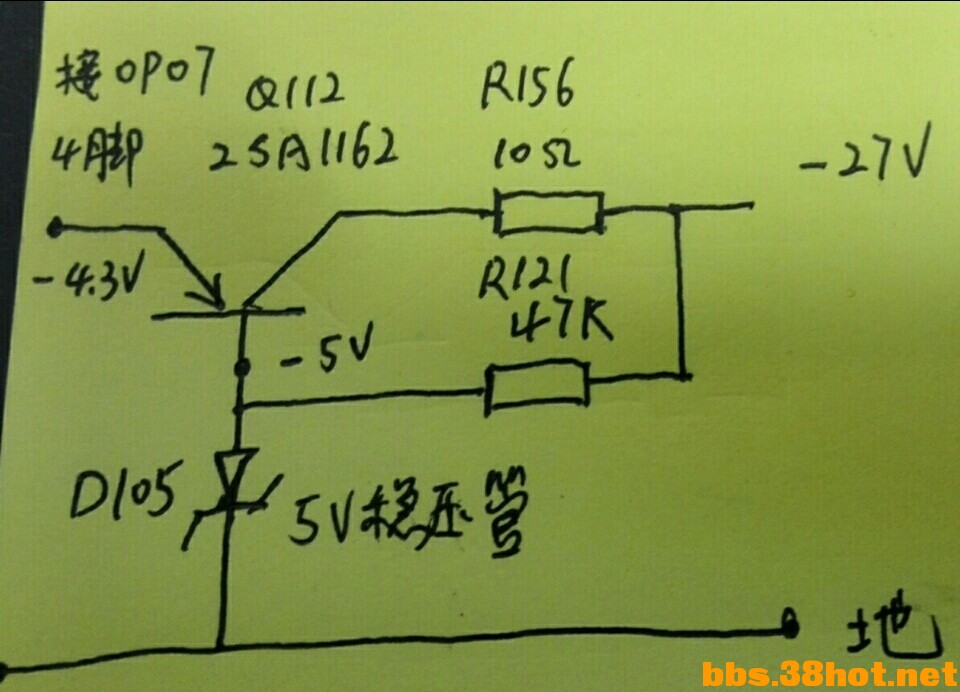 接OP07
4脚
Q112
2SA1162
R156
10Ω
-27V
-4.3V
R121
47K
-5V
D105
5V稳压管
地
bbs.38hot.net